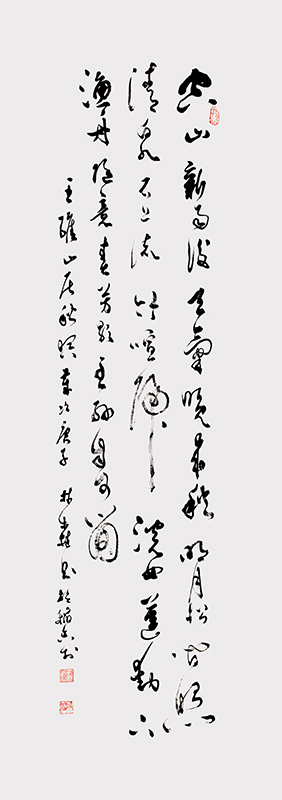 空山新雨後天氣晚來秋明月松間照
清泉石上流竹喧歸浣女蓮動下
漁舟隨意春芳歇王孫自可留
王維山居秋暝歲次庚子